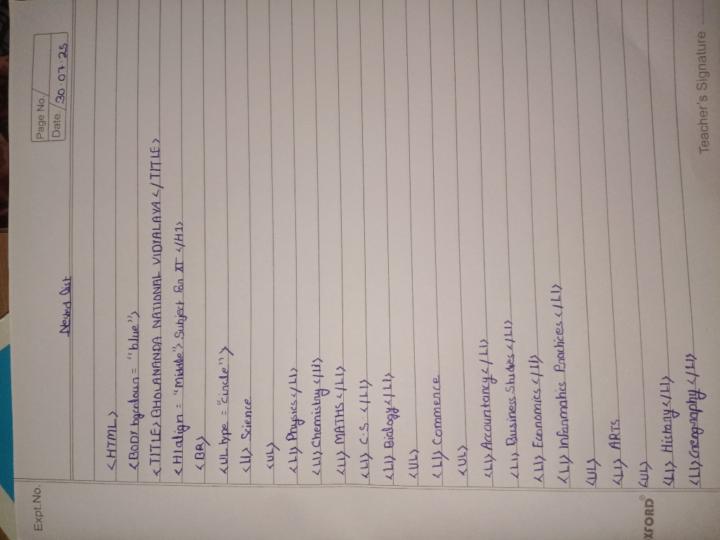 Expt. No.
Page No.
Date 30.07.25
Nested List
<HTML>
<BODY bgcolour = "blue">
<TITLE> BHOLANANDA NATIONAL VIDYALAYA </TITLE>
<H1 align = "Middle"> Subject For XI </H1>
<BR>
<UL type = "circle">
<LI> Science
<UL>
<LI> Physics </LI>
<LI> Chemistry </LI>
<LI> MATHS </LI>
<LI> C.S. </LI>
<LI> Biology </LI>
<UL>
<LI> Commerce
<UL>
<LI> Accountancy </LI>
<LI> Business Studies </LI>
<LI> Economics </LI>
<LI> Informatics Practices </LI>
<UL>
<LI> ARTS
<UL>
<LI> History </LI>
<LI> Geography </LI>
XFORD®
Teacher's Signature